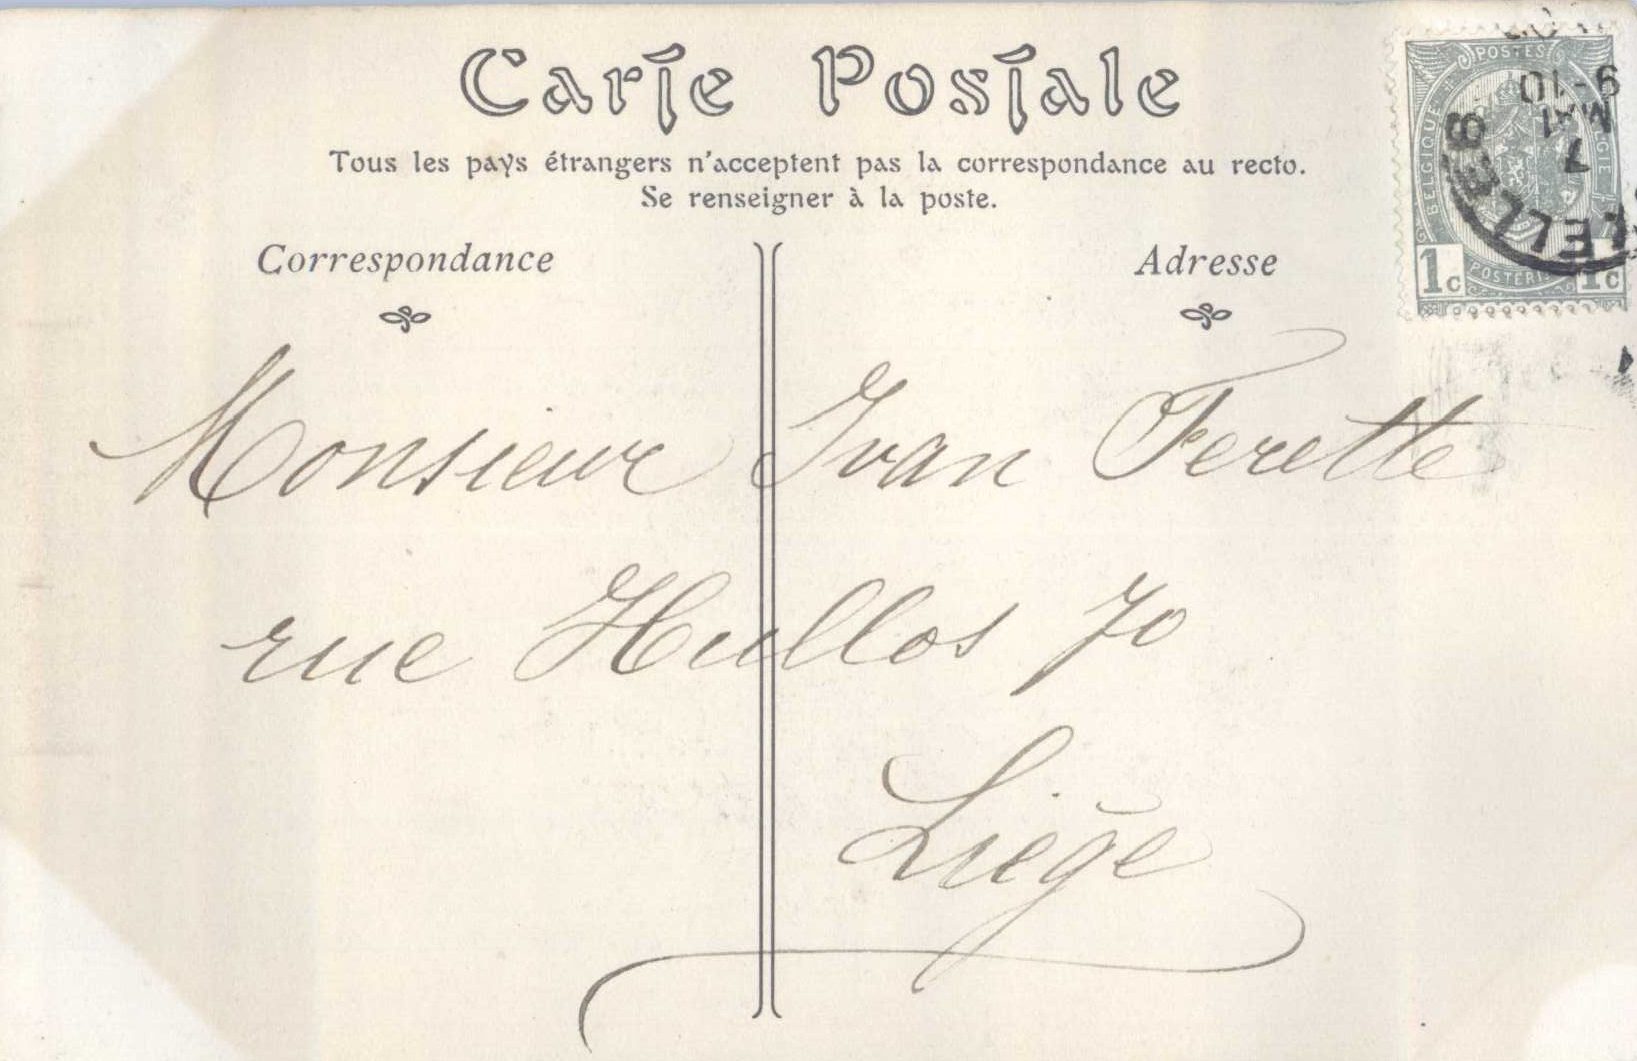 Carte Postale
Tous les pays étrangers n'acceptent pas la correspondance au recto.
Se renseigner à la poste.
Correspondance
Adresse
POSTES
BELGIQUE
1c 1c
9-10
MAI
7
Monsieur Ivan Ferette
rue Hullos 70
Liège